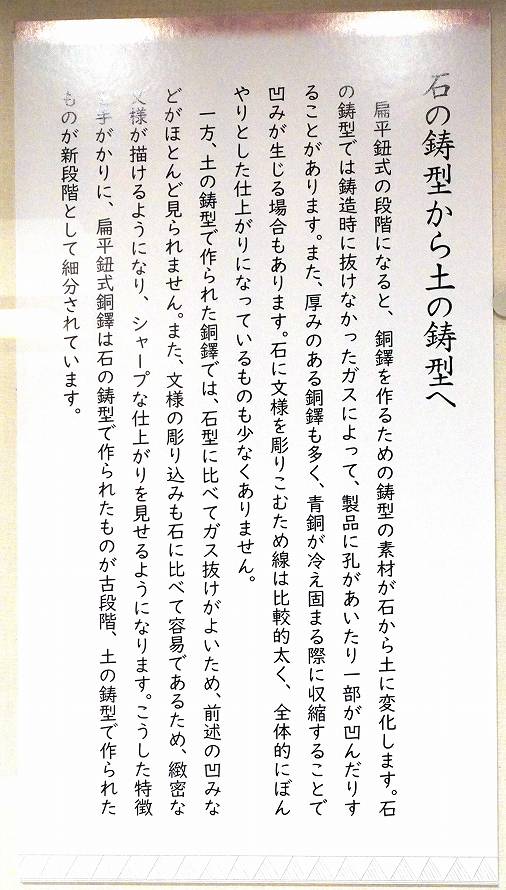 石の鋳型から土の鋳型へ
扁平鈕式の段階になると、銅鐸を作るための鋳型の素材が石から土に変化します。石
の鋳型では鋳造時に抜けなかったガスによって、製品に孔があいたり一部が凹んだりす
ることがあります。また、厚みのある銅鐸も多く、青銅が冷え固まる際に収縮することで
凹みが生じる場合もあります。石に文様を彫りこむため線は比較的太く、全体的にぼん
やりとした仕上がりになっているものも少なくありません。
一方、土の鋳型で作られた銅鐸では、石型に比べてガス抜けがよいため、前述の凹みな
どがほとんど見られません。また、文様の彫り込みも石に比べて容易であるため、緻密な
文様が描けるようになり、シャープな仕上がりを見せるようになります。こうした特徴
を手がかりに、扁平鈕式銅鐸は石の鋳型で作られたものが古段階、土の鋳型で作られた
ものが新段階として細分されています。